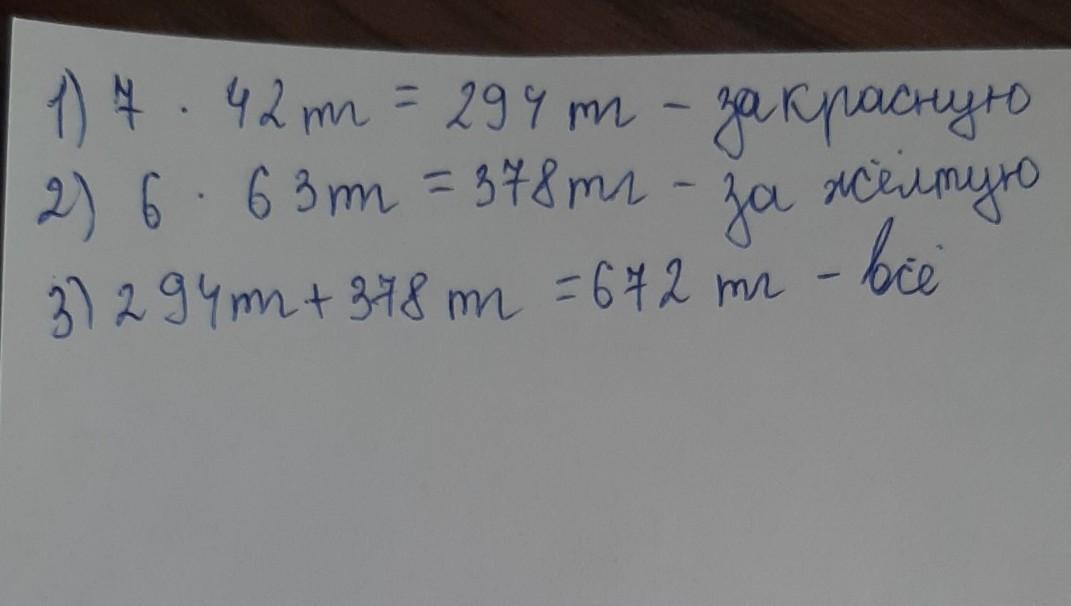 1) 7 · 42 т = 294 т - за красную
2) 6 · 63 т = 378 т - за жёлтую
3) 294 т + 378 т = 672 т - всё